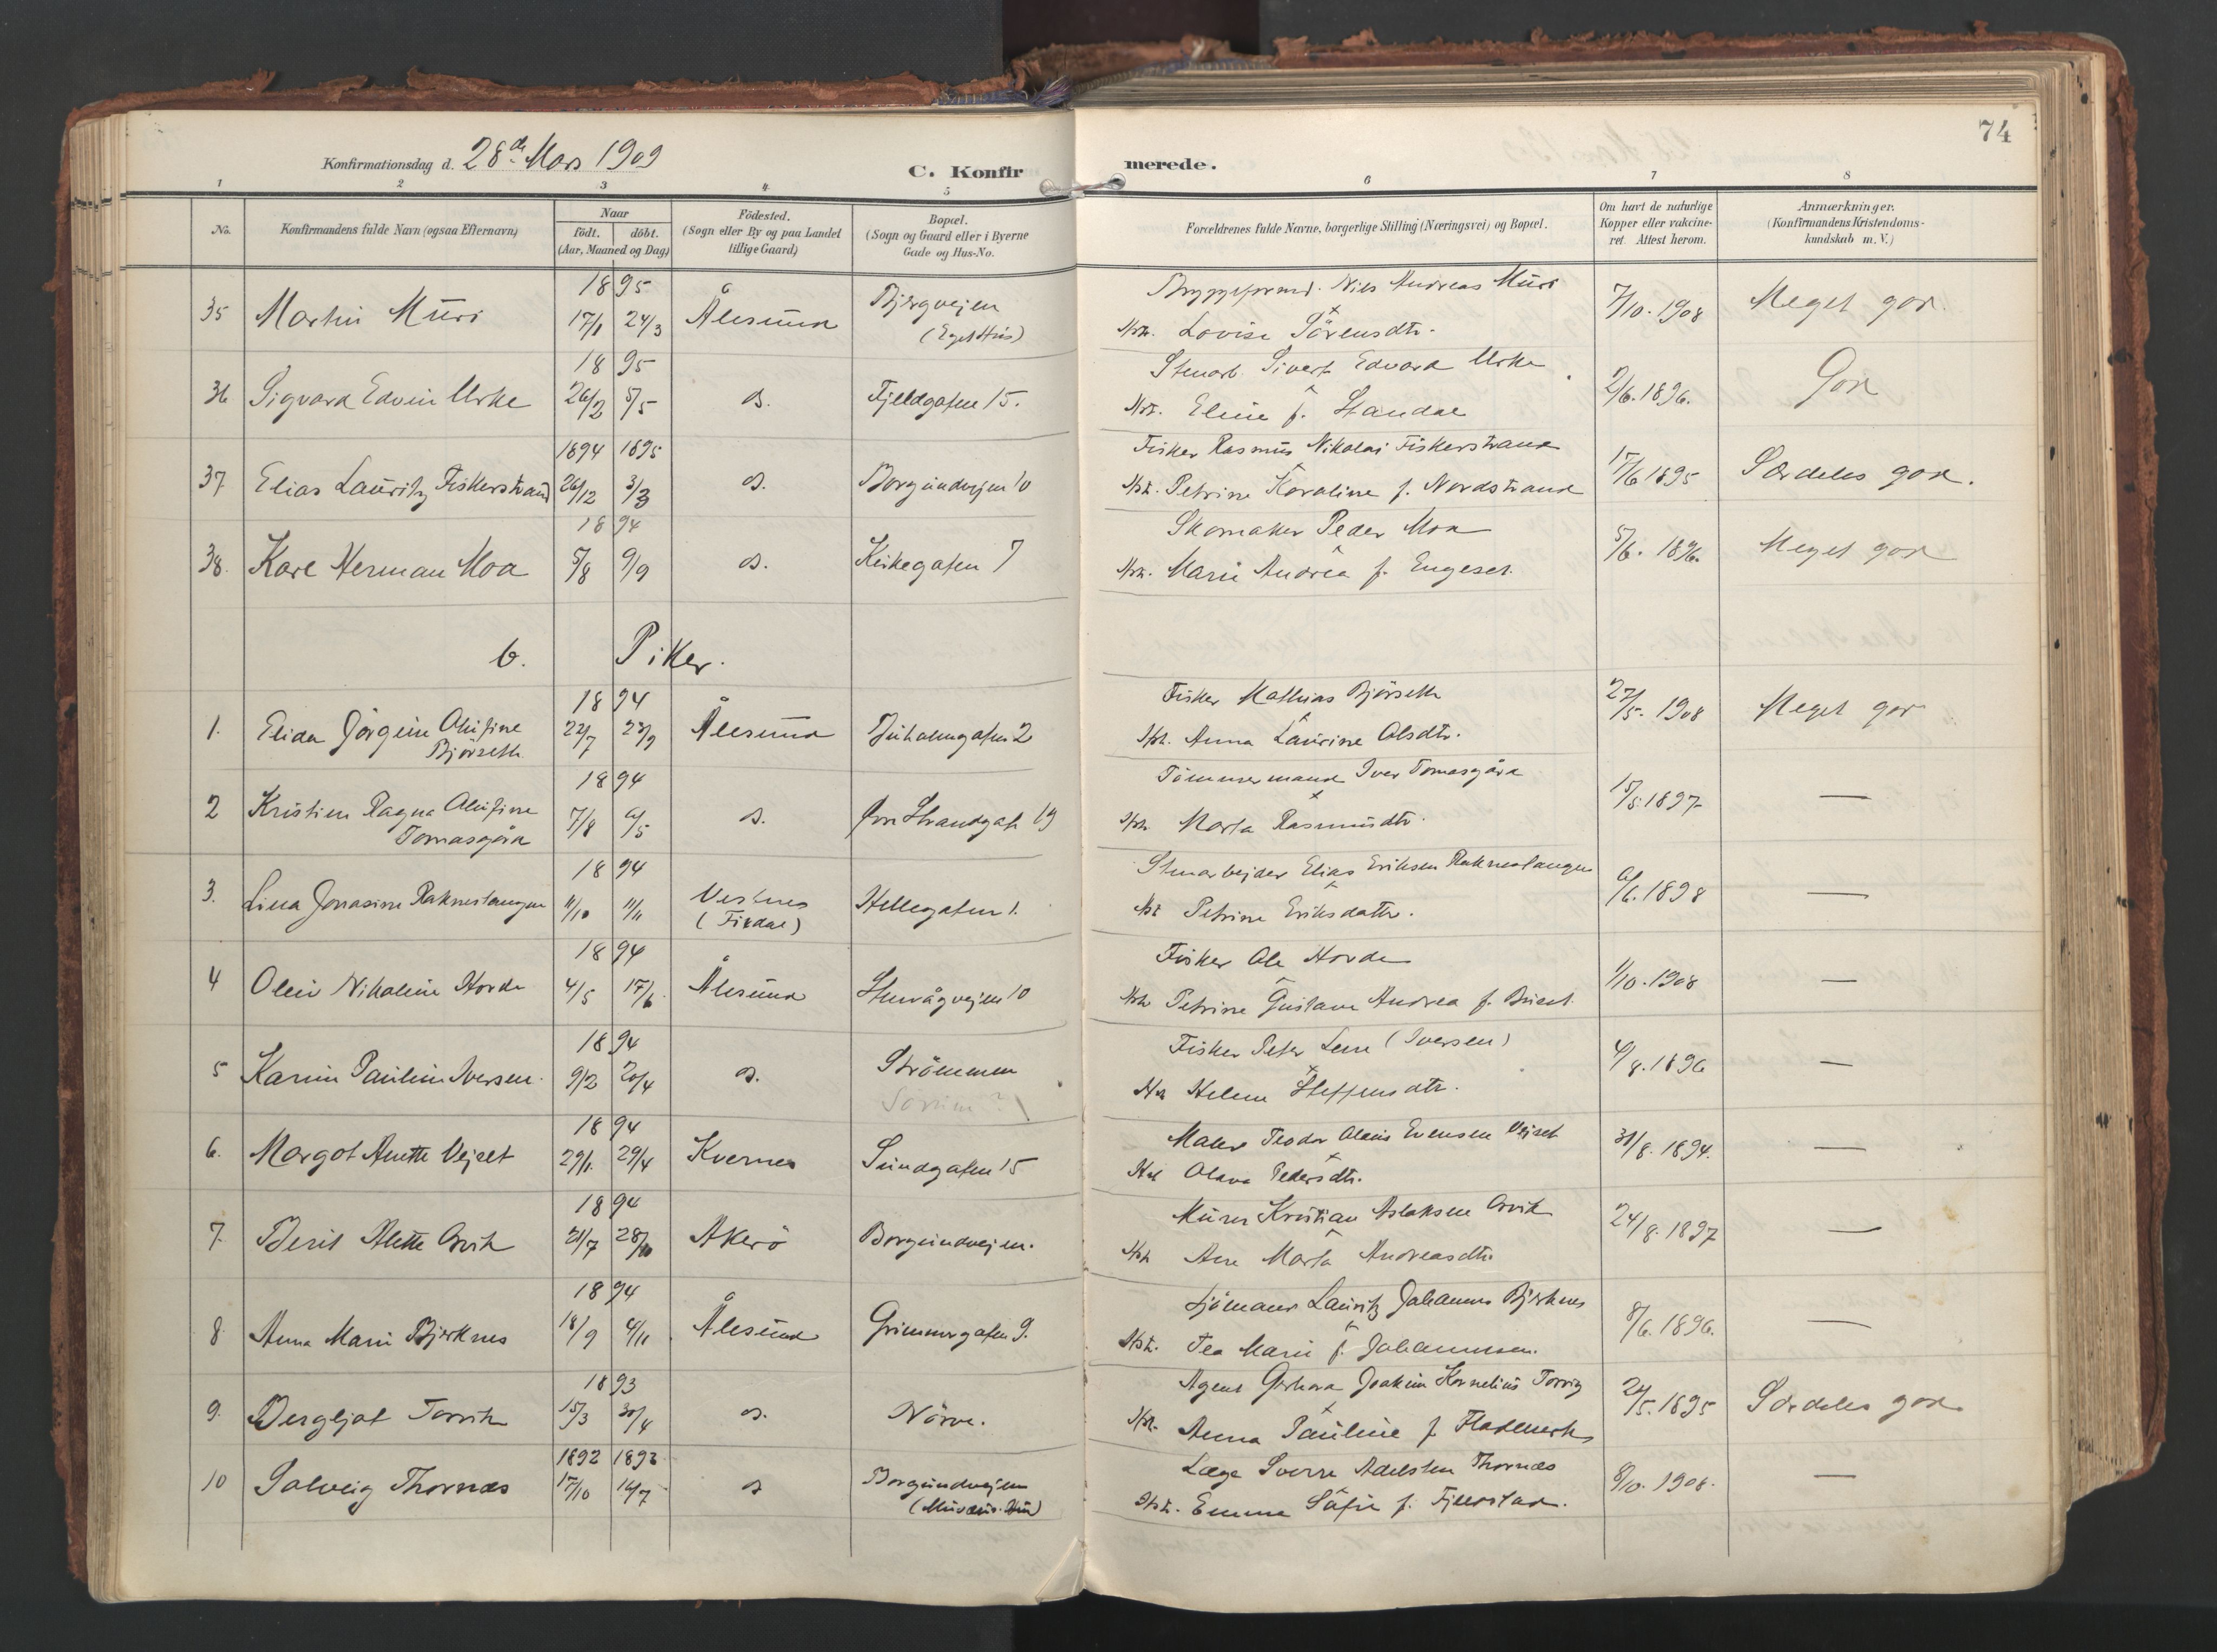 74
Konfirmationsdag d. 28de Mars 1909
C. Konfirmerede.
1 2 3 4 5 6 7 8
No.
Konfirmandens fulde Navn (ogsaa Efternavn)
Naar
født. døbt.
(Aar, Maaned og Dag)
Fødested.
(Sogn eller By og paa Landet
tillige Gaard)
Bopæl.
(Sogn og Gaard eller i Byerne
Gade og Hus-No.
Forældrenes fulde Navne, borgerlige Stilling (Næringsvei) og Bopæl.
Om havt de naturlige
Kopper eller vakcine-
ret. Attest herom.
Anmærkninger.
(Konfirmandens Kristendoms-
kundskab m. V.)
1895
35 Martin Muri 17/1 24/3 Ålesund Bjergvejen
(Eget Hus)
Nils Andreas Muri
Lovise Sörensdtr.
7/10. 1908 Meget god.
1895
36 Sigvard Edvin Urke 26/2 5/5 d. Fjeldgaten 15.
Stenarb. Sivert Edvard Urke
Eline f. Standal
2/6. 1896. God
1894 1895
37 Elias Lauritz Fiskerstrand 26/12 3/3 d. Borgundvejen 10
Fisker Rasmus Nikolai Fiskerstrand
Petrine Karoline f. Nordstrand
17/6 1895 Særdeles god.
1894
38. Karl Herman Moa 5/8 9/9 d. Kirkegaten 7
Skomaker Peder Moa
Marie Andrea f. Engeset.
5/6. 1896. Meget god
b. Piker.
1894
1. Elida Jörgine Olufine
Björseth
22/7 23/9 Ålesund
Fisker Mathias Björseth
Anna Laurine Olsdtr.
27/5. 1908 Meget god
1894
2 Kristine Ragna Olufine
Tomasgård
7/8 d. Strandgat 19
Tömmermand Iver Tomasgård
Marta Rasmusdtr.
15/5. 1897 —
1894
3. Lina Jonasine Raknestangen 11/10 11/11 Vestnes
(Fixdal)
Hellegaten 1.
Stenarbejder Elias Eriksen Raknestangen
Petrine Eriksdatter.
1898 —
1894
4 Oline Nikoline Hovde 4/5 17/6 Ålesund Stenvågvejen 10
Fisker Ole Hovde
Petrine Gustava Andrea f.
1/10. 1908 —
1894
5 Karin Pauline Iversen. 9/2 20/4 d. Strömmen
Fisker Peter Leine (Iversen)
Helene Steffensdtr.
4/8. 1896 —
1894
6. Margot Anette Vejset 29/1 29/4 Kvernes Sundgaten 15
Maler Teodor Olaus Evensen Vejset
Olava Pedersdtr.
31/8. 1894. —
1894
7. Berit Alette Orvik 21/7 28/10 Akerö Borgundvejen.
Murer Kristian Aslaksen Orvik
Ane Marta Andreasdtr.
24/8. 1897 —
1894
8 Anna Marie Bjerknes 18/9 4/11 Ålesund Grimmergaten 9.
Sjömand Lauritz Johannes Bjerknes
Tea Marie f. Johannessen.
8/6. 1896. —
1893
9. Bergljot Torvik 15/3 30/4 d. Nörve.
Agent Gerhard Joakim Kornelius Torvig
Anna Pauline f. Flademark
24/5. 1895 Særdeles god
1892 1893
10 Solveig Thornæs 17/10 16/7 d Borgundvejen
Læge Sverre Adelsten Thornæs
Emma Sofie f. Fjeldstad.
8/10. 1908. —